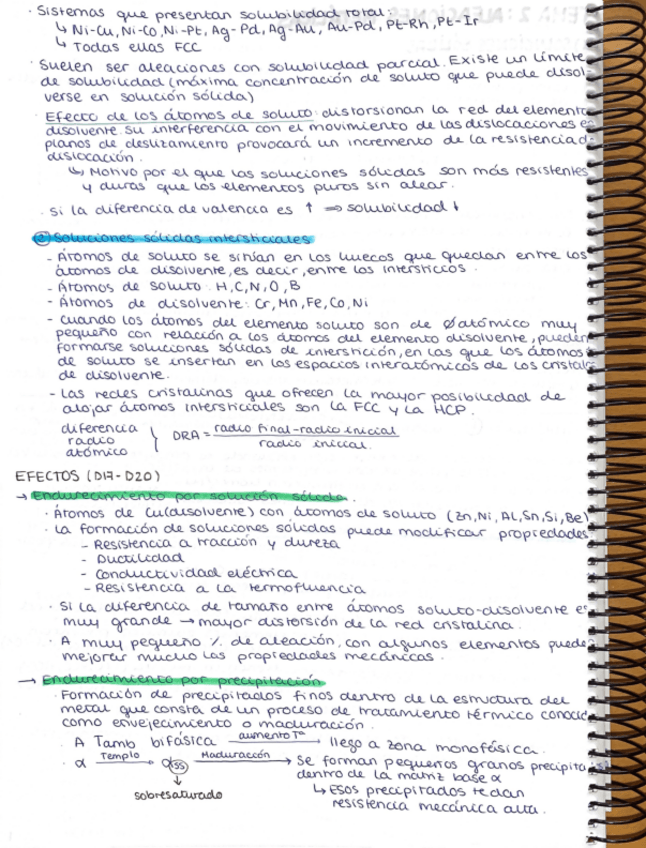 · Sistemas que presentan solubilidad total:
↳ Ni-Cu, Ni-Co, Ni-Pt, Ag-Pd, Ag-Au, Au-Pd, Pt-Rh, Pt-Ir
↳ Todas ellas FCC
· Suelen ser aleaciones con solubilidad parcial. Existe un límite
de solubilidad (máxima concentración de soluto que puede disol-
verse en solución sólida)
· Efecto de los átomos de soluto: distorsionan la red del elemento
disolvente. Su interferencia con el movimiento de las dislocaciones en
planos de deslizamiento provocará un incremento de la resistencia d
dislocación.
↳ Motivo por el que las soluciones sólidas son más resistentes
y duras que los elementos puros sin alear.
· Si la diferencia de valencia es ↑ ⇒ solubilidad ↓
② Soluciones sólidas intersticiales
- Átomos de soluto se sitúan en los huecos que quedan entre los
átomos de disolvente, es decir, entre los intersticios.
- Átomos de soluto: H, C, N, O, B
- Átomos de disolvente: Cr, Mn, Fe, Co, Ni
- Cuando los átomos del elemento soluto son de Ø atómico muy
pequeño con relación a los átomos del elemento disolvente, pueden
formarse soluciones sólidas de interstición, en las que los átomos
de soluto se insertan en los espacios interatómicos de los cristales
de disolvente.
- Las redes cristalinas que ofrecen la mayor posibilidad de
alojar átomos intersticiales son la FCC y la HCP.
diferencia
radio
atómico } DRA = radio final-radio inicial
radio inicial
EFECTOS (D17-D20)
→ Endurecimiento por solución sólida.
· Átomos de Cu (disolvente) con átomos de soluto (Zn, Ni, Al, Sn, Si, Be)
· La formación de soluciones sólidas puede modificar propiedades
- Resistencia a tracción y dureza
- Ductilidad
- Conductividad eléctrica
- Resistencia a la termofluencia
· Si la diferencia de tamaño entre átomos soluto-disolvente es
muy grande → mayor distorsión de la red cristalina.
· A muy pequeño % de aleación, con algunos elementos puede
mejorar mucho las propiedades mecánicas.
→ Endurecimiento por precipitación
· Formación de precipitados finos dentro de la estructura del
metal que consta de un proceso de tratamiento térmico conocid
como envejecimiento o maduración.
· A Tamb bifásica aumento Tª → llego a zona monofásica.
· α Templo → α(SS) Maduración → Se forman pequeños granos precipita
dentro de la matriz base α
↓
sobresaturado
↳ Esos precipitados te dan
resistencia mecánica alta.